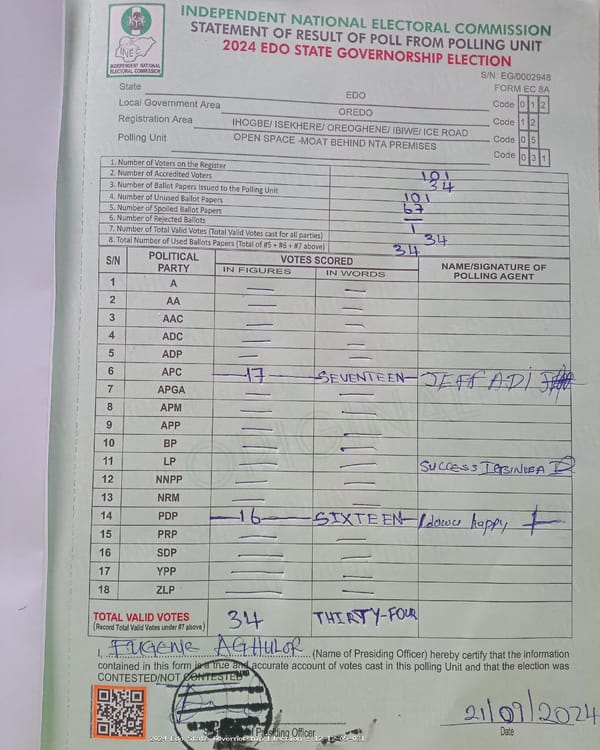 INDEPENDENT NATIONAL ELECTORAL COMMISSION
STATEMENT OF RESULT OF POLL FROM POLLING UNIT
2024 EDO STATE GOVERNORSHIP ELECTION
INEC
INDEPENDENT NATIONAL
ELECTORAL COMMISSION
S/N: EG/0002948
FORM EC 8A
State EDO Code 0 1 2
Local Government Area OREDO Code 1 2
Registration Area IHOGBE/ ISEKHERE/ OREOGHENE/ IBIWE/ ICE ROAD Code 0 5
Polling Unit OPEN SPACE -MOAT BEHIND NTA PREMISES Code 0 3 1
1. Number of Voters on the Register 101
2. Number of Accredited Voters 34
3. Number of Ballot Papers Issued to the Polling Unit 101
4. Number of Unused Ballot Papers 67
5. Number of Spoiled Ballot Papers —
6. Number of Rejected Ballots 1
7. Number of Total Valid Votes (Total Valid Votes cast for all parties) 34
8. Total Number of Used Ballots Papers (Total of #5 + #6 + #7 above) 34
S/N POLITICAL PARTY VOTES SCORED NAME/SIGNATURE OF POLLING AGENT
IN FIGURES IN WORDS
1 A — —
2 AA — —
3 AAC — —
4 ADC — —
5 ADP — —
6 APC —17— SEVENTEEN— JEFF ADI
7 APGA — —
8 APM — —
9 APP — —
10 BP — —
11 LP — — SUCCESS
12 NNPP — —
13 NRM — —
14 PDP —16— SIXTEEN— happy
15 PRP — —
16 SDP — —
17 YPP — —
18 ZLP — —
TOTAL VALID VOTES 34 THIRTY-FOUR
(Record Total Valid Votes under #7 above)
I, EUGENE AGHULOR (Name of Presiding Officer) hereby certify that the information
contained in this form is a true and accurate account of votes cast in this polling Unit and that the election was
CONTESTED/NOT CONTESTED
21/09/2024
Presiding Officer Date
ORIGINAL